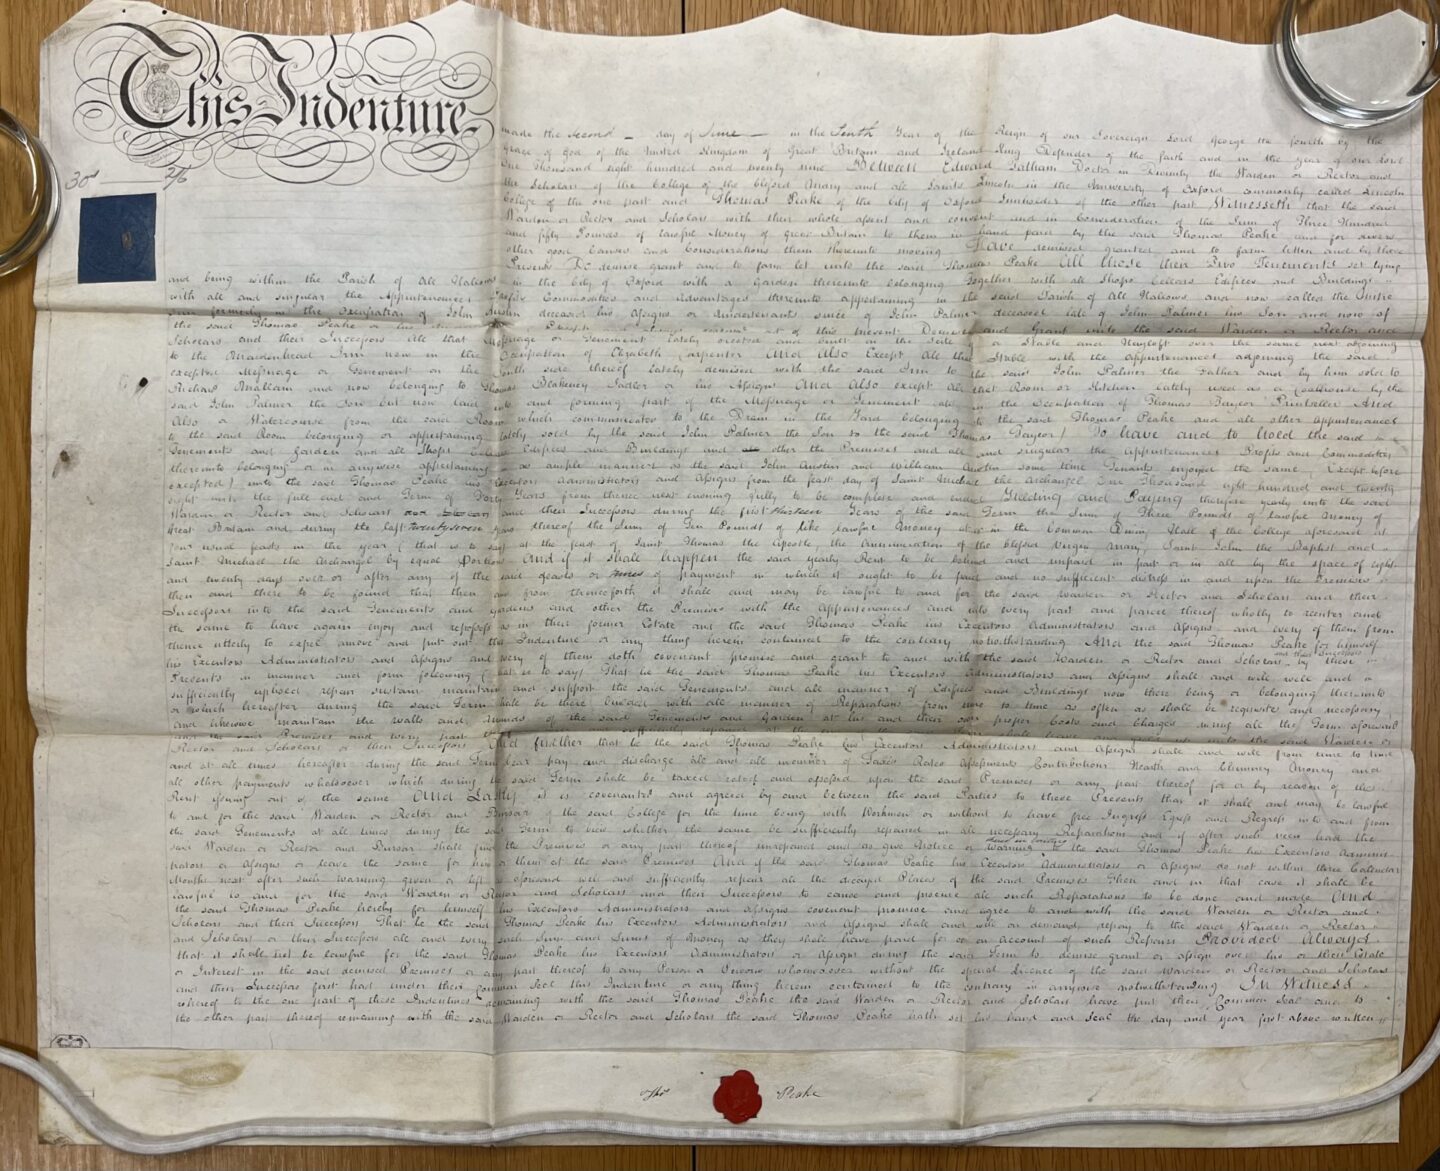 This Indenture
30s 2/6
made the Second day of June in the Tenth Year of the Reign of our Sovereign Lord George the fourth by the
Grace of God of the United Kingdom of Great Britain and Ireland King Defender of the faith and in the year of our Lord
One Thousand eight hundred and twenty nine Between Edward Tatham Doctor in Divinity the Warden or Rector and
the Scholars of the College of the Blessed Mary and all Saints Lincoln in the University of Oxford commonly called Lincoln
College of the one part and Thomas Peake of the City of Oxford Innholder of the other part Witnesseth that the said
Warden or Rector and Scholars with their whole assent and consent and in Consideration of the Sum of Three Hundred
and fifty Pounds of lawful Money of Great Britain to them in hand paid by the said Thomas Peake and for divers
other good Causes and Considerations them thereunto moving Have demised granted and to farm letten and by these
Presents Do demise grant and to farm let unto the said Thomas Peake All those their Two Tenements set lying
and being within the Parish of All Hallows in the City of Oxford with a Garden thereunto belonging Together with all Shops Cellars Edifices and Buildings
with all and singular the Appurtenances Profits Commodities and Advantages thereunto appertaining in the said Parish of All Hallows and now called the Mitre
Inn formerly in the Occupation of John Austin deceased his Assigns or Undertenants since of John Palmer deceased late of John Palmer his Son and now of
the said Thomas Peake or his Except and always reserved out of this present Demise and Grant unto the said Warden or Rector and
Scholars and their Successors All that Messuage or Tenement lately erected and built on the Scite of a Stable and Hayloft over the same next adjoining
to the Maidenhead Inn now in the Occupation of Elizabeth Carpenter And Also Except All that Stable with the appurtenances adjoining the said
excepted Messuage or Tenement on the South side thereof lately demised with the said Inn to the said John Palmer the Father and by him sold to
Richard Wallam and now belonging to Thomas Blakeney Sadler or his Assigns And Also except all that Room or Kitchen lately used as a by the
said John Palmer the Son but now laid into and forming part of the Messuage or Tenement in the Occupation of Thomas Taylor And
Also a Watercourse from the said Room which communicates to the Drain in the Yard belonging to the said Thomas Peake and all other Appurtenances
to the said Room belonging or appertaining lately sold by the said John Palmer the Son to the said Thomas Taylor) To have and to hold the said
Tenements and Garden and all Shops Cellars Edifices and Buildings and all other the Premises and all and singular the Appurtenances Profits and Commodities
thereunto belonging or in anywise appertaining in as ample manner as the said John Austin and William Austin some time Tenants enjoyed the same (Except before
excepted) unto the said Thomas Peake his Executors Administrators and Assigns from the feast day of Saint Michael the Archangel One Thousand eight hundred and twenty
eight unto the full end and Term of Forty Years from thence next ensuing fully to be complete and ended Yielding and Paying therefore yearly unto the said
Warden or Rector and Scholars and their Successors during the first thirteen Years of the said Term the Sum of Three Pounds of lawful Money of
Great Britain and during the last twenty seven Years thereof the Sum of Ten Pounds of like lawful Money at or in the Common Dining Hall of the College aforesaid at
four usual feasts in the year (that is to say) at the feast of Saint Thomas the Apostle, the Annunciation of the blessed Virgin Mary, Saint John the Baptist and
Saint Michael the Archangel by equal Portions And if it shall happen the said yearly Rent to be behind and unpaid in part or in all by the space of eight
and twenty days over or after any of the said feasts or times of payment in which it ought to be paid and no sufficient distress in and upon the Premises
then and there to be found that then and from thenceforth it shall and may be lawful to and for the said Warden or Rector and Scholars and their
Successors into the said Tenements and Gardens and other the Premises with the appurtenances and into every part and parcel thereof wholly to reenter and
the same to have again enjoy and repossess as in their former Estate and the said Thomas Peake his Executors Administrators and Assigns and every of them from
thence utterly to expel amove and put out this Indenture or any thing herein contained to the contrary notwithstanding And the said Thomas Peake for himself
his Executors Administrators and Assigns and every of them doth covenant promise and grant to and with the said Warden or Rector and Scholars and their Successors by these
Presents in manner and form following (that is to say) That he the said Thomas Peake his Executors Administrators and Assigns shall and will well and
sufficiently uphold repair sustain maintain and support the said Tenements and all manner of Edifices and Buildings now there being or belonging thereunto
or which hereafter during the said Term shall be there builded with all manner of Reparations from time to time as often as shall be requisite and necessary
and likewise maintain the walls and Mounds of the said Tenements and Garden at his and their own proper Costs and Charges during all the Term aforesaid
and the said Premises and every part sufficiently repaired at the shall leave unto the said Warden or
Rector and Scholars or their Successors And further that he the said Thomas Peake his Executors Administrators and Assigns shall and will from time to time
and at all times hereafter during the said Term bear pay and discharge all and all manner of Taxes Rates Assessments Contributions Hearth and Chimney Money and
all other payments whatsoever which during the said Term shall be taxed rated and assessed upon the said Premises or any part thereof for or by reason of the
Rent issuing out of the same And Lastly it is covenanted and agreed by and between the said Parties to these Presents that it shall and may be lawful
to and for the said Warden or Rector and Bursar of the said College for the time being with Workmen or without to have free Ingress Egress and Regress into and from
the said Tenements at all times during the said Term to view whether the same be sufficiently repaired in all necessary Reparations and if after such view had the
said Warden or Rector and Bursar shall find the Premises or any part thereof unrepaired and so give Notice or Warning to the said Thomas Peake his Executors Adminis-
trators or Assigns or leave the same for him or them at the said Premises And if the said Thomas Peake his Executors Administrators or Assigns do not within three Calendar
Months next after such warning given or left as aforesaid well and sufficiently repair all the decayed Places of the said Premises Then and in that case it shall be
lawful to and for the said Warden or Rector and Scholars and their Successors to cause and procure all such Reparations to be done and made And
the said Thomas Peake hereby for himself his Executors Administrators and Assigns covenant promise and agree to and with the said Warden or Rector and
Scholars and their Successors That he the said Thomas Peake his Executors Administrators and Assigns shall and will on demand, repay to the said Warden or Rector
and Scholars or their Successors all and every such Sum and Sums of Money as they shall have paid for or on account of such Repairs Provided Always
that it shall not be lawful for the said Thomas Peake his Executors Administrators or Assigns during the said Term to demise grant or assign over his or their Estate
or Interest in the said demised Premises or any part thereof to any Person or Persons whomsoever without the special Licence of the said Warden or Rector and Scholars
and their Successors first had under their Common Seal this Indenture or any thing herein contained to the contrary in anywise notwithstanding In Witness
whereof to the one part of these Indentures remaining with the said Thomas Peake the said Warden or Rector and Scholars have put their Common Seal and to
the other part thereof remaining with the said Warden or Rector and Scholars the said Thomas Peake hath set his hand and Seal the day and year first above written
Thos Peake